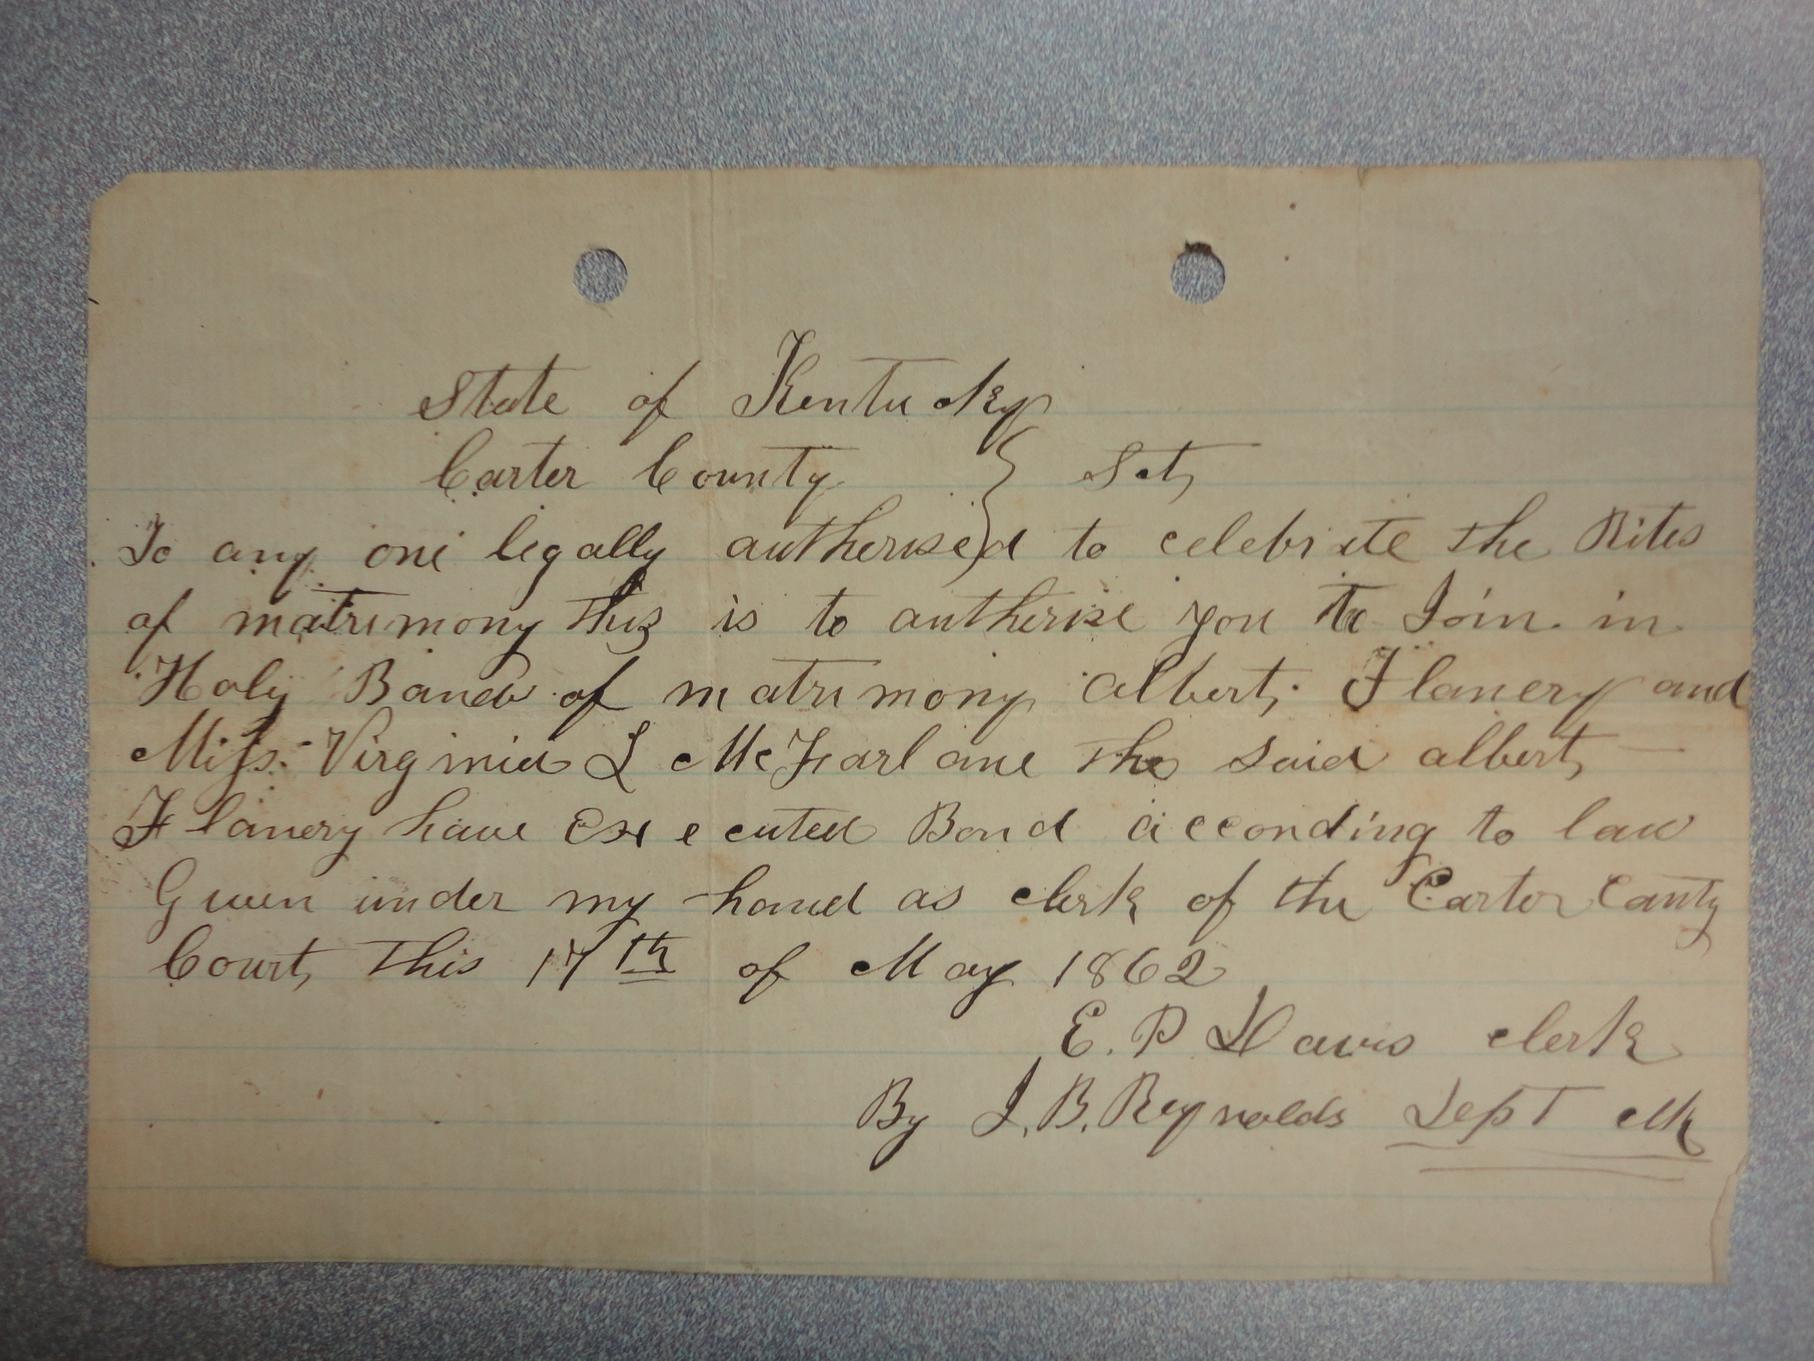 State of Kentucky
Carter County } Sct,
To any one legally autherised to celebrate the Rites
of matrimony this is to autherise you to Join in
Holy Bands of matrimony Albert, Flanery and
Miss Virginia L McFarlane the said albert,
Flanery have executed Bond according to law
Given under my hand as clerk of the Carter Canty
Court, this 17th of May 1862
E. P Davis clerk
By J. B. Reynolds Dept clk